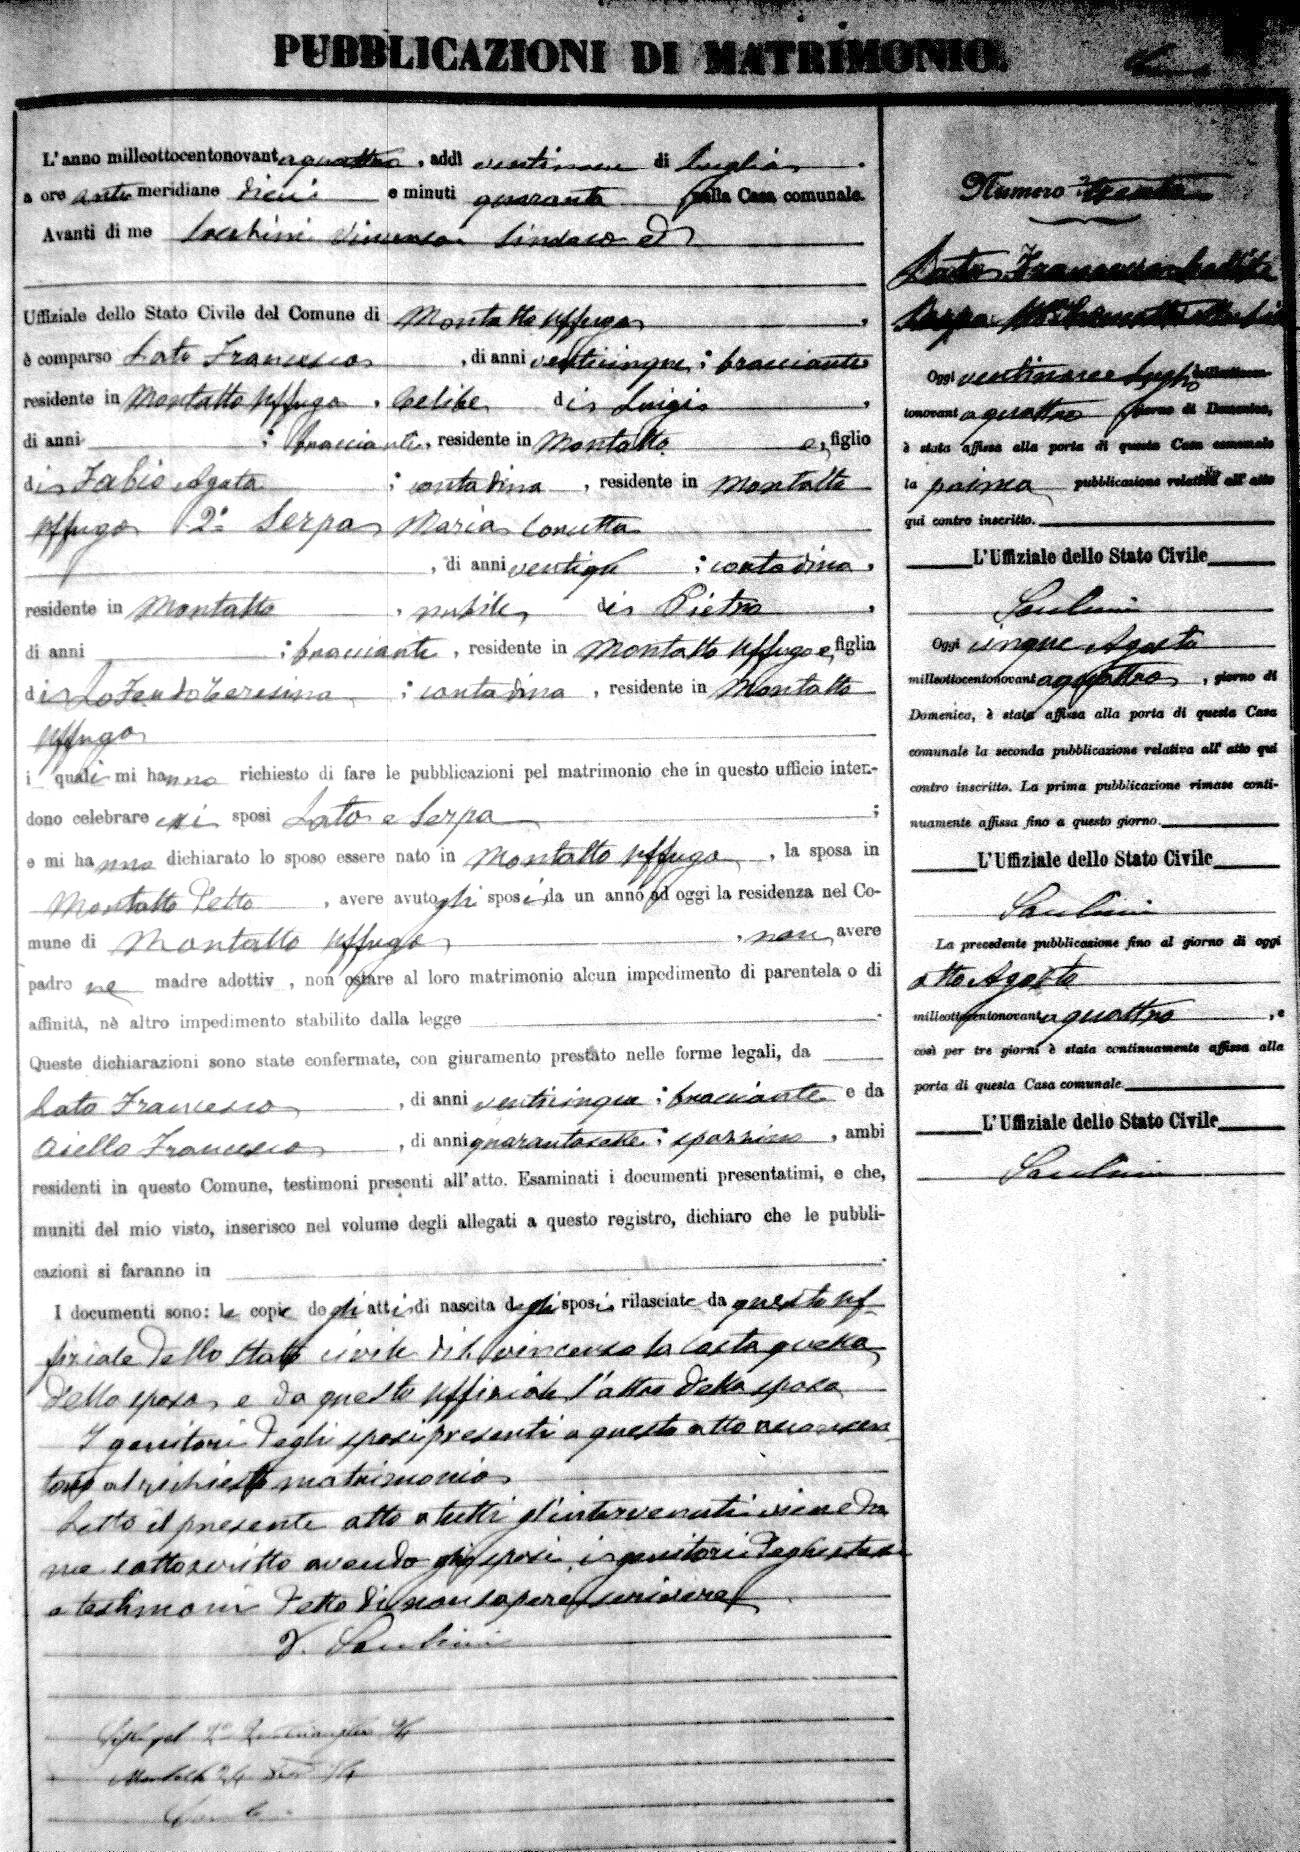 PUBBLICAZIONI DI MATRIMONIO.
L'anno milleottocentonovantaquattro, addì ventinove di Luglio.
a ore ante meridiane dieci e minuti quaranta nella Casa comunale.
Avanti di me Vincenzo Sindaco ed
Uffiziale dello Stato Civile del Comune di Montalto Uffugo,
è comparso Lato Francesco, di anni venticinque; bracciante
residente in Montalto Uffugo, Celibe di Luigi,
di anni ; bracciante, residente in Montalto e, figlio
di Fabio Agata ; contadina, residente in Montalto
Uffugo 2º Serpa Maria Concetta
, di anni ; contadina,
residente in Montalto, nubile, di Pietro,
di anni ; bracciante, residente in Montalto Uffugo e, figlia
di Lo Feudo Teresina ; contadina, residente in Montalto
Uffugo
i quali mi hanno richiesto di fare le pubblicazioni pel matrimonio che in questo ufficio inten-
dono celebrare essi sposi Lato e Serpa ;
e mi hanno dichiarato lo sposo essere nato in Montalto Uffugo, la sposa in
Montalto detto, avere avuto gli sposi da un anno ad oggi la residenza nel Co-
mune di Montalto Uffugo, non avere
padro ne madre adottiv , non ostare al loro matrimonio alcun impedimento di parentela o di
affinità, nè altro impedimento stabilito dalla legge .
Queste dichiarazioni sono state confermate, con giuramento prestato nelle forme legali, da
Lato Francesco, di anni venticinque; bracciante e da
Aiello Francesco, di anni quarantasette; spazzino, ambi
residenti in questo Comune, testimoni presenti all'atto. Esaminati i documenti presentatimi, e che,
muniti del mio visto, inserisco nel volume degli allegati a questo registro, dichiaro che le pubbli-
cazioni si faranno in .
I documenti sono: le copie degli atti di nascita degli sposi rilasciate da questo uf-
fiziale dello stato civile di S. Vincenzo la Costa quella
dello sposo, e da questo Ufficiale l'altra della sposa
I genitori degli sposi presenti a questo atto acconsen-
tono al richiesto matrimonio
Letto il presente atto a tutti gl'intervenuti viene da
me sottoscritto avendo gli sposi, i genitori degli stessi
e testimoni detto di non sapere scrivere
Numero trenta
Lato Francesco
Serpa
Oggi ventinove Luglio milleottocen-
tonovantaquattro giorno di Domenica,
è stata affissa alla porta di questa Casa comunale
la prima pubblicazione relativa all'atto
qui contro inscritto.
L'Uffiziale dello Stato Civile
Oggi cinque Agosto
milleottocentonovantaquattro, giorno di
Domenica, è stata affissa alla porta di questa Casa
comunale la seconda pubblicazione relativa all'atto qui
contro inscritto. La prima pubblicazione rimase conti-
nuamente affissa fino a questo giorno.
L'Uffiziale dello Stato Civile
La precedente pubblicazione fino al giorno di oggi
otto Agosto
milleottocentonovantaquattro, e
così per tre giorni è stata continuamente affissa alla
porta di questa Casa comunale.
L'Uffiziale dello Stato Civile